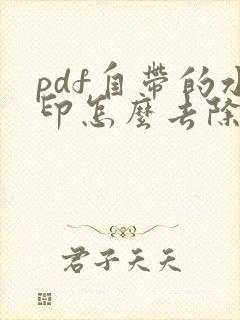 pdf自帶的水
印怎麼去除
君子天天